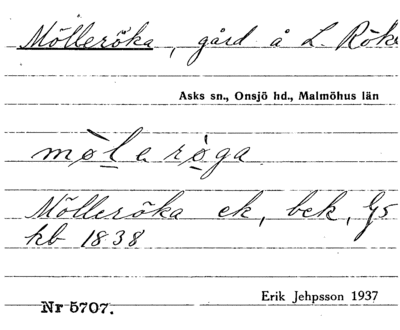 Mölleröka, gård å L. Röke
Asks sn., Onsjö hd., Malmöhus län
mølarøga
Mölleröka ek, bek, Gs
kb 1838
Erik Jehpsson 1937
Nr 5707.